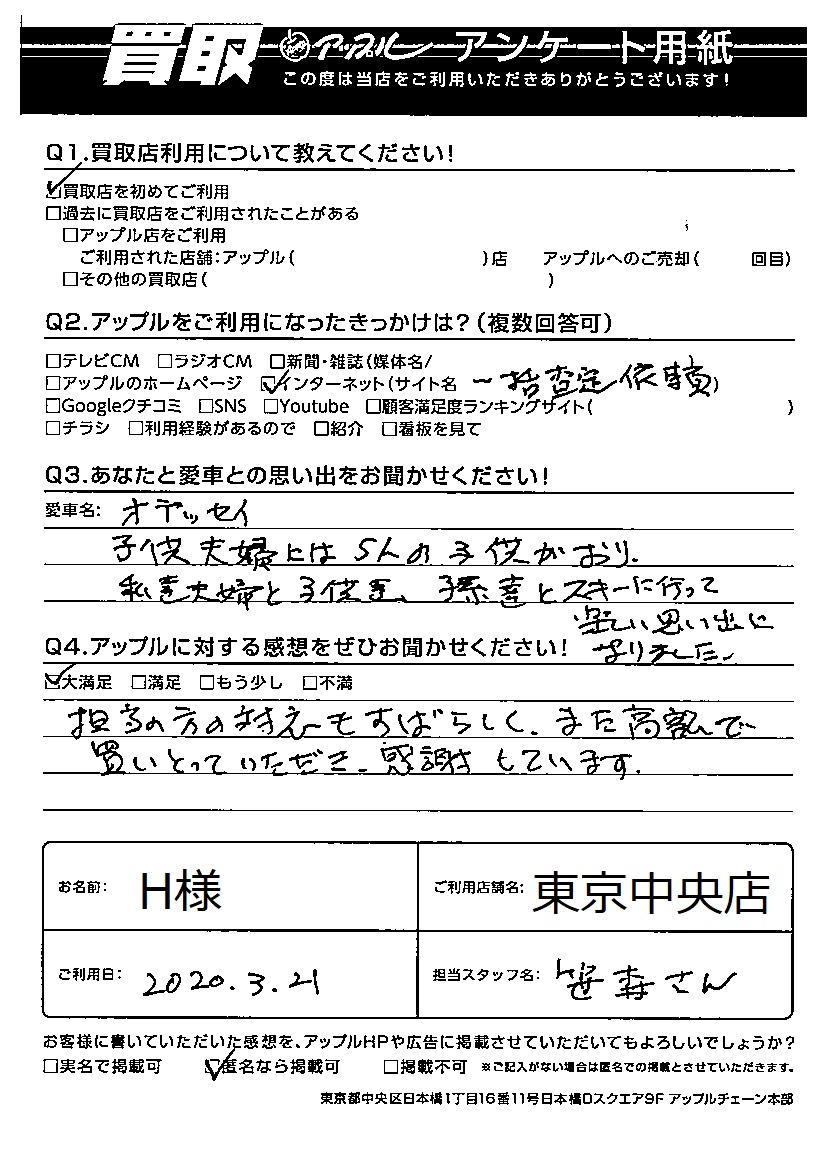 買取 アップル アンケート用紙
この度は当店をご利用いただきありがとうございます!
Q1.買取店利用について教えてください!
☑買取店を初めてご利用
□過去に買取店をご利用されたことがある
□アップル店をご利用
ご利用された店舗:アップル( )店 アップルへのご売却( 回目)
□その他の買取店( )
Q2.アップルをご利用になったきっかけは?(複数回答可)
□テレビCM □ラジオCM □新聞・雑誌(媒体名/
□アップルのホームページ ☑インターネット(サイト名 一括査定依頼)
□Googleクチコミ □SNS □Youtube □顧客満足度ランキングサイト( )
□チラシ □利用経験があるので □紹介 □看板を見て
Q3.あなたと愛車との思い出をお聞かせください!
愛車名: オデッセイ
子供夫婦には5人の子供がおり、
私達夫婦と子供達、孫達とスキーに行って
楽しい思い出に
なりました。
Q4.アップルに対する感想をぜひお聞かせください!
☑大満足 □満足 □もう少し □不満
担当の方の対応もすばらしく、また高額で
買いとっていただき、感謝しています。
お名前: H様
ご利用店舗名: 東京中央店
ご利用日: 2020.3.21
担当スタッフ名: 笹森さん
お客様に書いていただいた感想を、アップルHPや広告に掲載させていただいてもよろしいでしょうか?
□実名で掲載可 ☑匿名なら掲載可 □掲載不可 ※ご記入がない場合は匿名での掲載とさせていただきます。
東京都中央区日本橋1丁目16番11号日本橋Dスクエア9F アップルチェーン本部